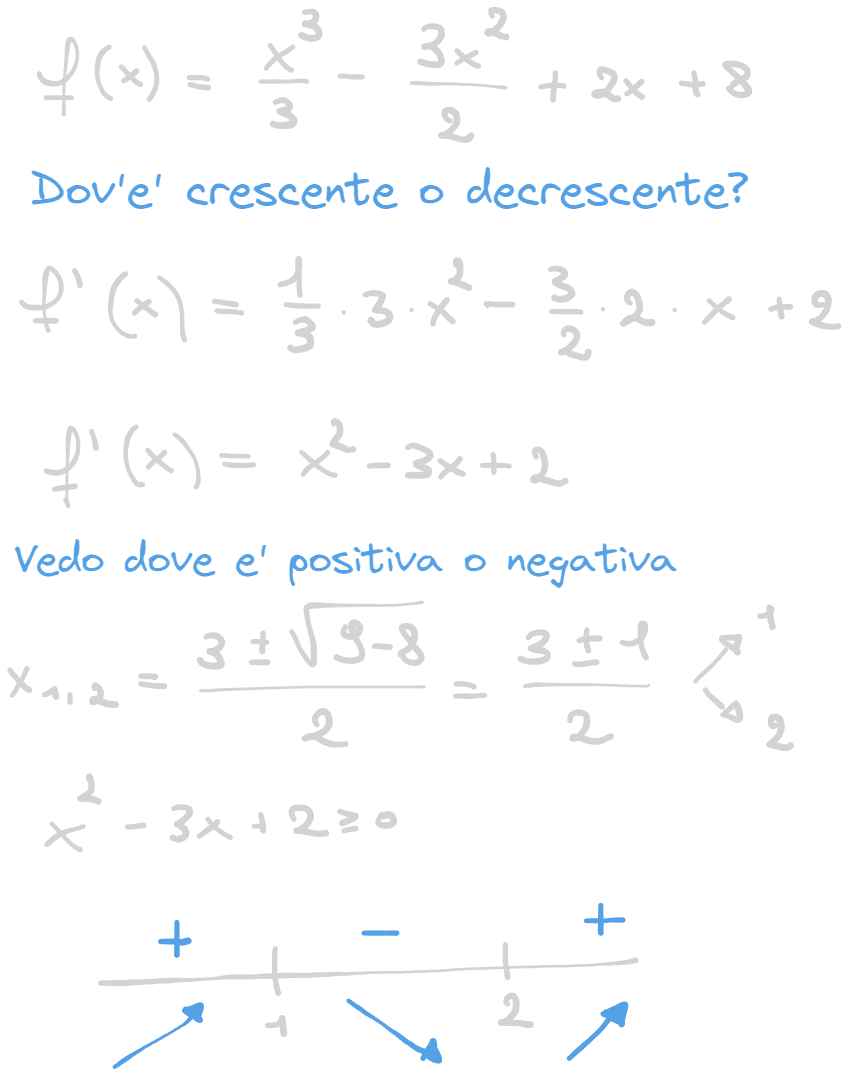 f(x) = x³/3 - 3x²/2 + 2x + 8
Dov'e' crescente o decrescente?
f'(x) = 1/3 · 3 · x² - 3/2 · 2 · x + 2
f'(x) = x² - 3x + 2
Vedo dove e' positiva o negativa
x₁,₂ = (3 ± √(9-8))/2 = (3 ± 1)/2 1 2
x² - 3x + 2 ≥ 0
+ - +
1 2